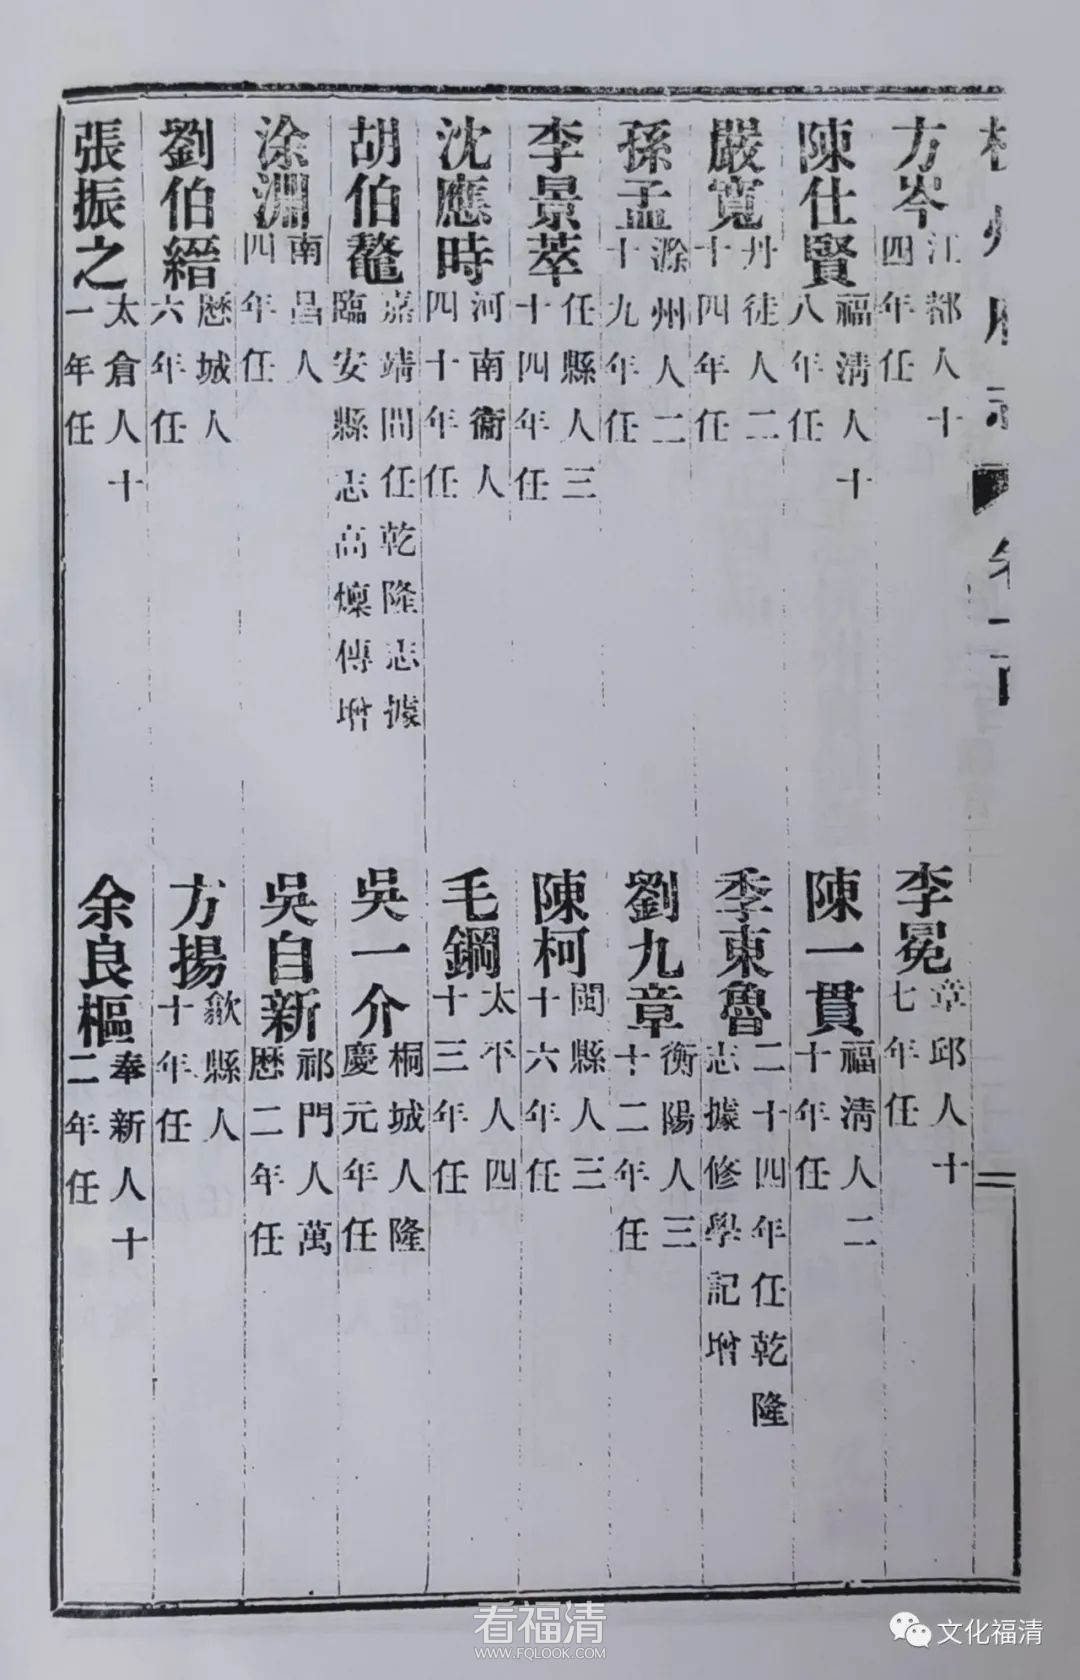 杭州府志 卷一百
方岑 江都人十四年任
李冕 章邱人十七年任
陳仕賢 福淸人十八年任
陳一貫 福淸人二十年任
嚴寬 丹徒人二十四年任
季東魯 二十四年任乾隆志據修學記增
孫孟 滁州人二十九年任
劉九章 衡陽人三十二年任
李景萃 任縣人三十四年任
陳柯 閩縣人三十六年任
沈應時 河南衞人四十年任
毛鋼 太平人四十三年任
胡伯鼇 嘉靖間任乾隆志據臨安縣志高燷傳增
吳一介 桐城人隆慶元年任
涂淵 南昌人四年任
吳自新 祁門人萬歷二年任
劉伯縉 歷城人六年任
方揚 歙縣人十年任
張振之 太倉人十一年任
余良樞 奉新人十二年任
看福清
WWW.FQLOOK.COM
文化福清